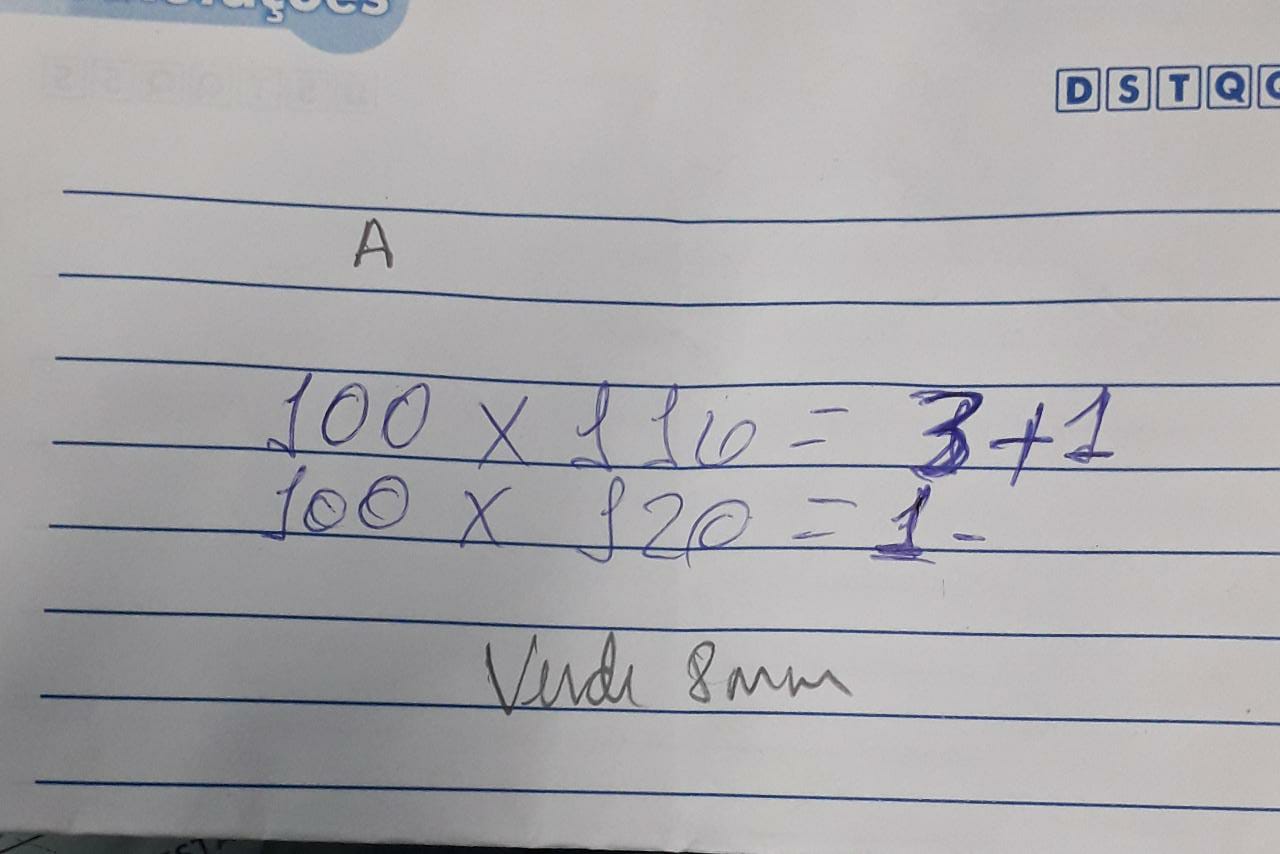 D S T Q
A
100 x 110 = 3+1
100 x 120 = 1 -
Verde 8mm